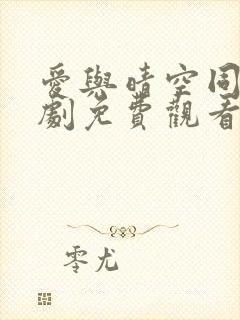 愛與晴空同
劇免費觀看
零尤